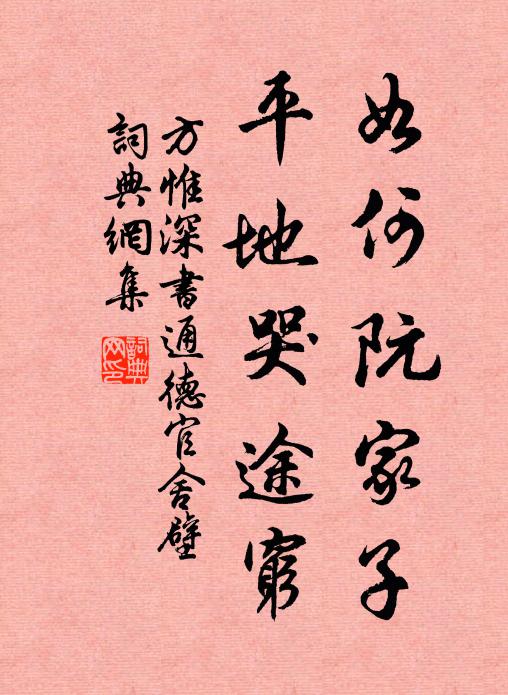 如何阮家子
平地哭途窮
方惟深書通德官舍壁
詞典網集
詞典網印